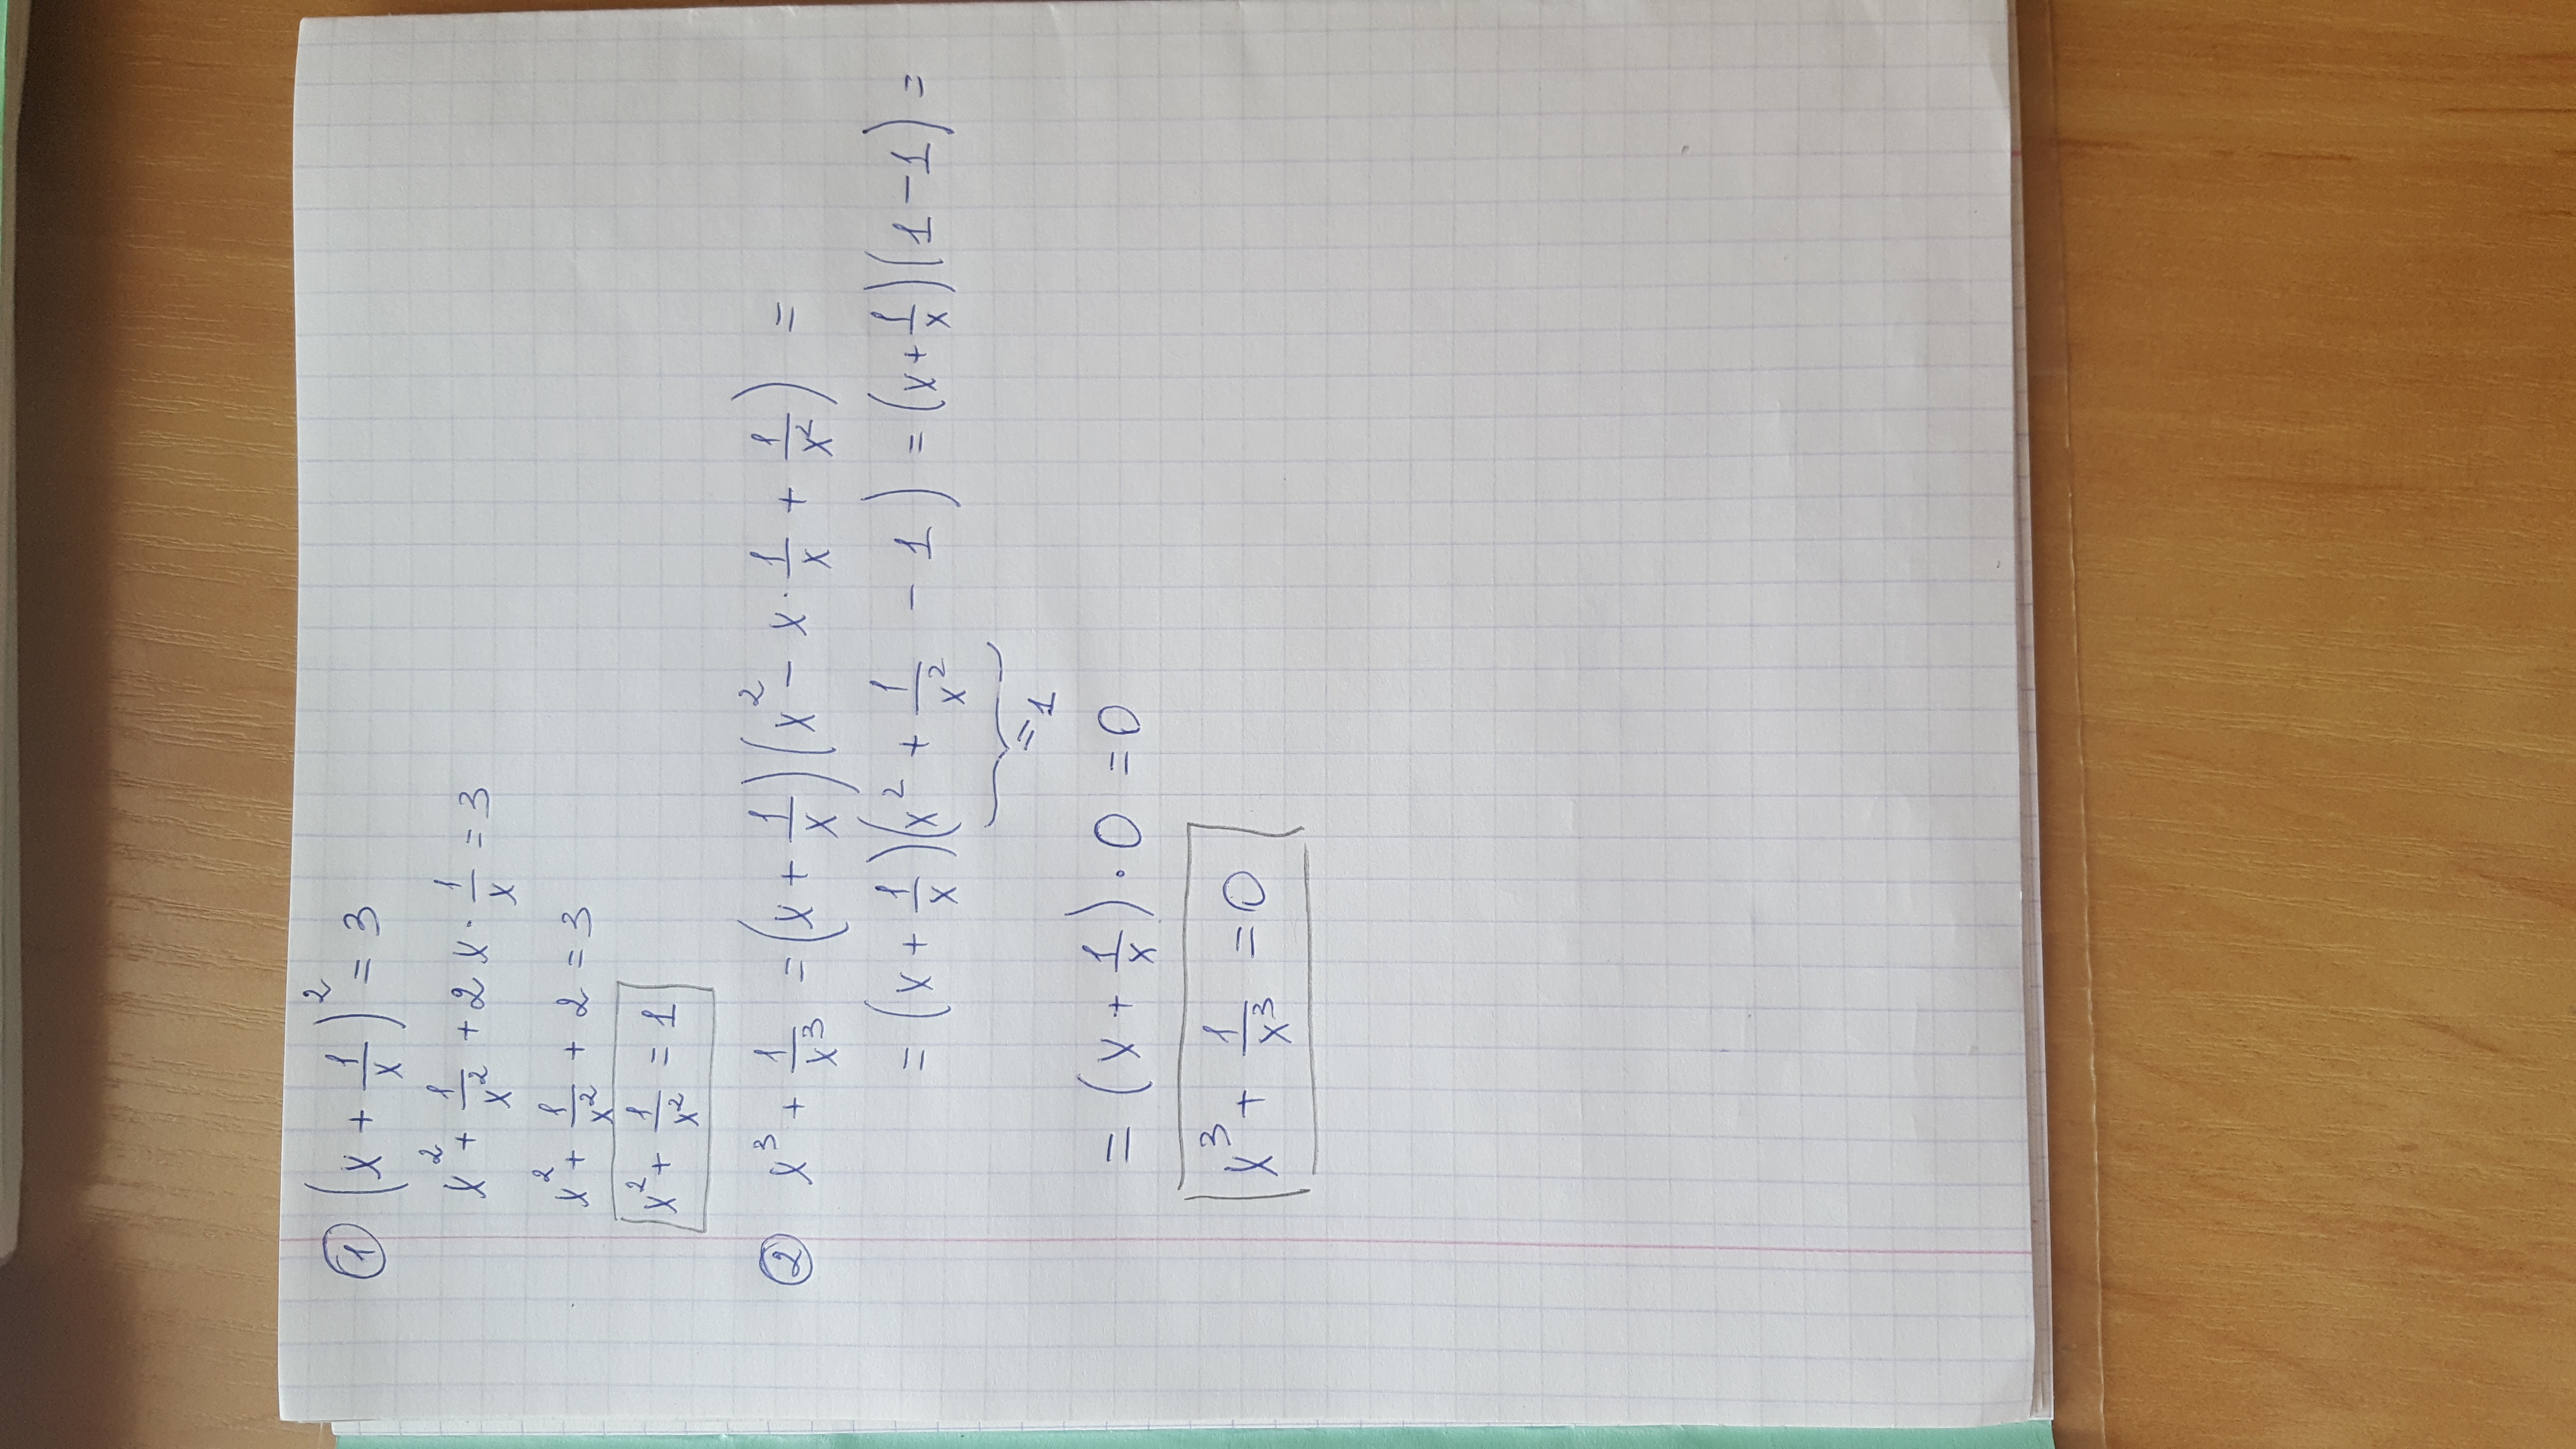 ① (x + 1/x)² = 3
x² + 1/x² + 2x · 1/x = 3
x² + 1/x² + 2 = 3
x² + 1/x² = 1
② x³ + 1/x³ = (x + 1/x)(x² - x · 1/x + 1/x²) =
= (x + 1/x)(x² + 1/x² - 1) = (x + 1/x)(1 - 1) =
= 1
= (x + 1/x) · 0 = 0
x³ + 1/x³ = 0